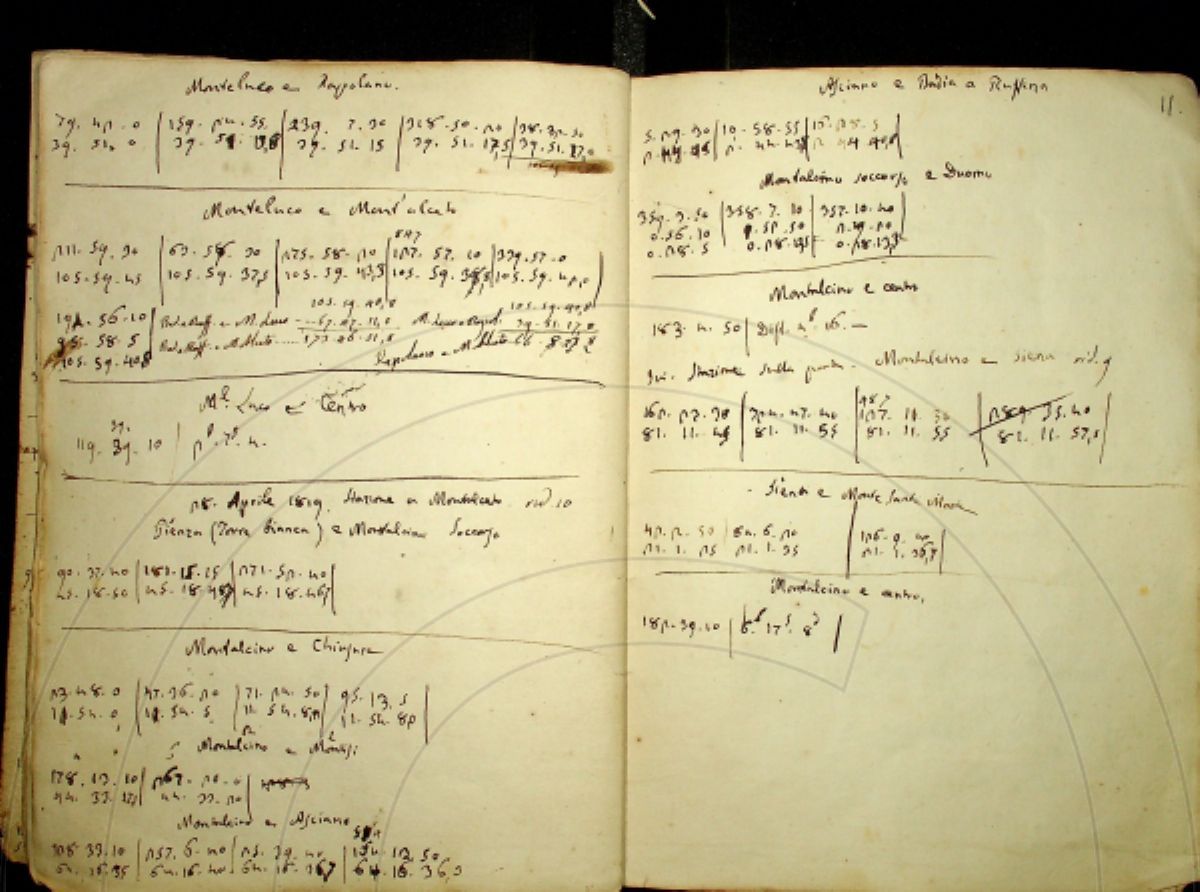 Monteluco e Rapolano.
79. 42. 0 | 159. 24. 55 | 239. 7. 30 | 318. 50. 20 | 38. 32. 50
39. 51. 0 | 39. 51. 13,8 | 39. 51. 15 | 39. 51. 17,5 | 39. 51. 17,0
Monteluco e Mont'alceto
847
211. 59. 30 | 63. 58. 30 | 275. 58. 20 | 127. 57. 10 | 339. 57. 0
105. 59. 45 | 105. 59. 37,5 | 105. 59. 43,3 | 105. 59. 38,8 | 105. 59. 42,0
191. 56. 10
95. 58. 5
105. 59. 40,8
105. 59. 40,8
Bad. a Ruff. e M. Luco 67. 47. 11,0
Bad. a Ruff. e M. Alceto 173. 46. 51,8
105. 59. 40,8
M. Luco e Rapol. 39. 51. 17,0
Rapolano e M. Alceto 66. 8. 23,8
M.e Luco e Centro
39.
119. 39. 10 | 2p. 7p. 4.
28. Aprile 1819. Stazione a Montalceto rid. 10
Pienza (Torre bianca) e Montalcino Soccorso
90. 37. 40 | 181. 15. 15 | 271. 52. 40
45. 18. 50 | 45. 18. 48,7 | 45. 18. 46,7
Montalcino e Chiusure
23. 48. 0 | 47. 36. 20 | 71. 24. 50 | 95. 13. 5
11. 54. 0 | 11. 54. 5 | 11. 54. 8,3 | 11. 54. 8,2
Montalcino e Montisi
178. 13. 10 | 267. 20. 0
44. 33. 17,5 | 44. 33. 20
Montalcino e Asciano
514
128. 33. 10 | 257. 6. 40 | 25. 39. 40 | 154. 12. 50
64. 16. 35 | 64. 16. 40 | 64. 16. 36,7 | 64. 16. 36,3
11.
Asciano e Badia a Ruffina
5. 29. 30 | 10. 58. 55 | 16. 28. 5
2. 44. 45 | 2. 44. 43,8 | 2. 44. 40,8
Montalcino soccorso e Duomo
359. 3. 50 | 358. 7. 10 | 357. 10. 40
0. 56. 10 | 1. 52. 50 | 2. 49. 20
0. 28. 5 | 0. 28. 12,5 | 0. 28. 13,3
Montalcino e centro
183. 4. 50 | Dist. 4p. 16. —
Ivi. Stazione sulla porta. Montalcino e Siena rid. 9
487
162. 23. 30 | 324. 47. 40 | 127. 11. 30 | 289. 35. 40
81. 11. 45 | 81. 11. 55 | 81. 11. 55 | 81. 11. 57,5
Siena e Monte Santa Maria
42. 2. 50 | 84. 6. 20 | 126. 9. 40
21. 1. 25 | 21. 1. 35 | 21. 1. 36,7
Montalcino e centro.
182. 39. 10 | 6p. 17s. 8d